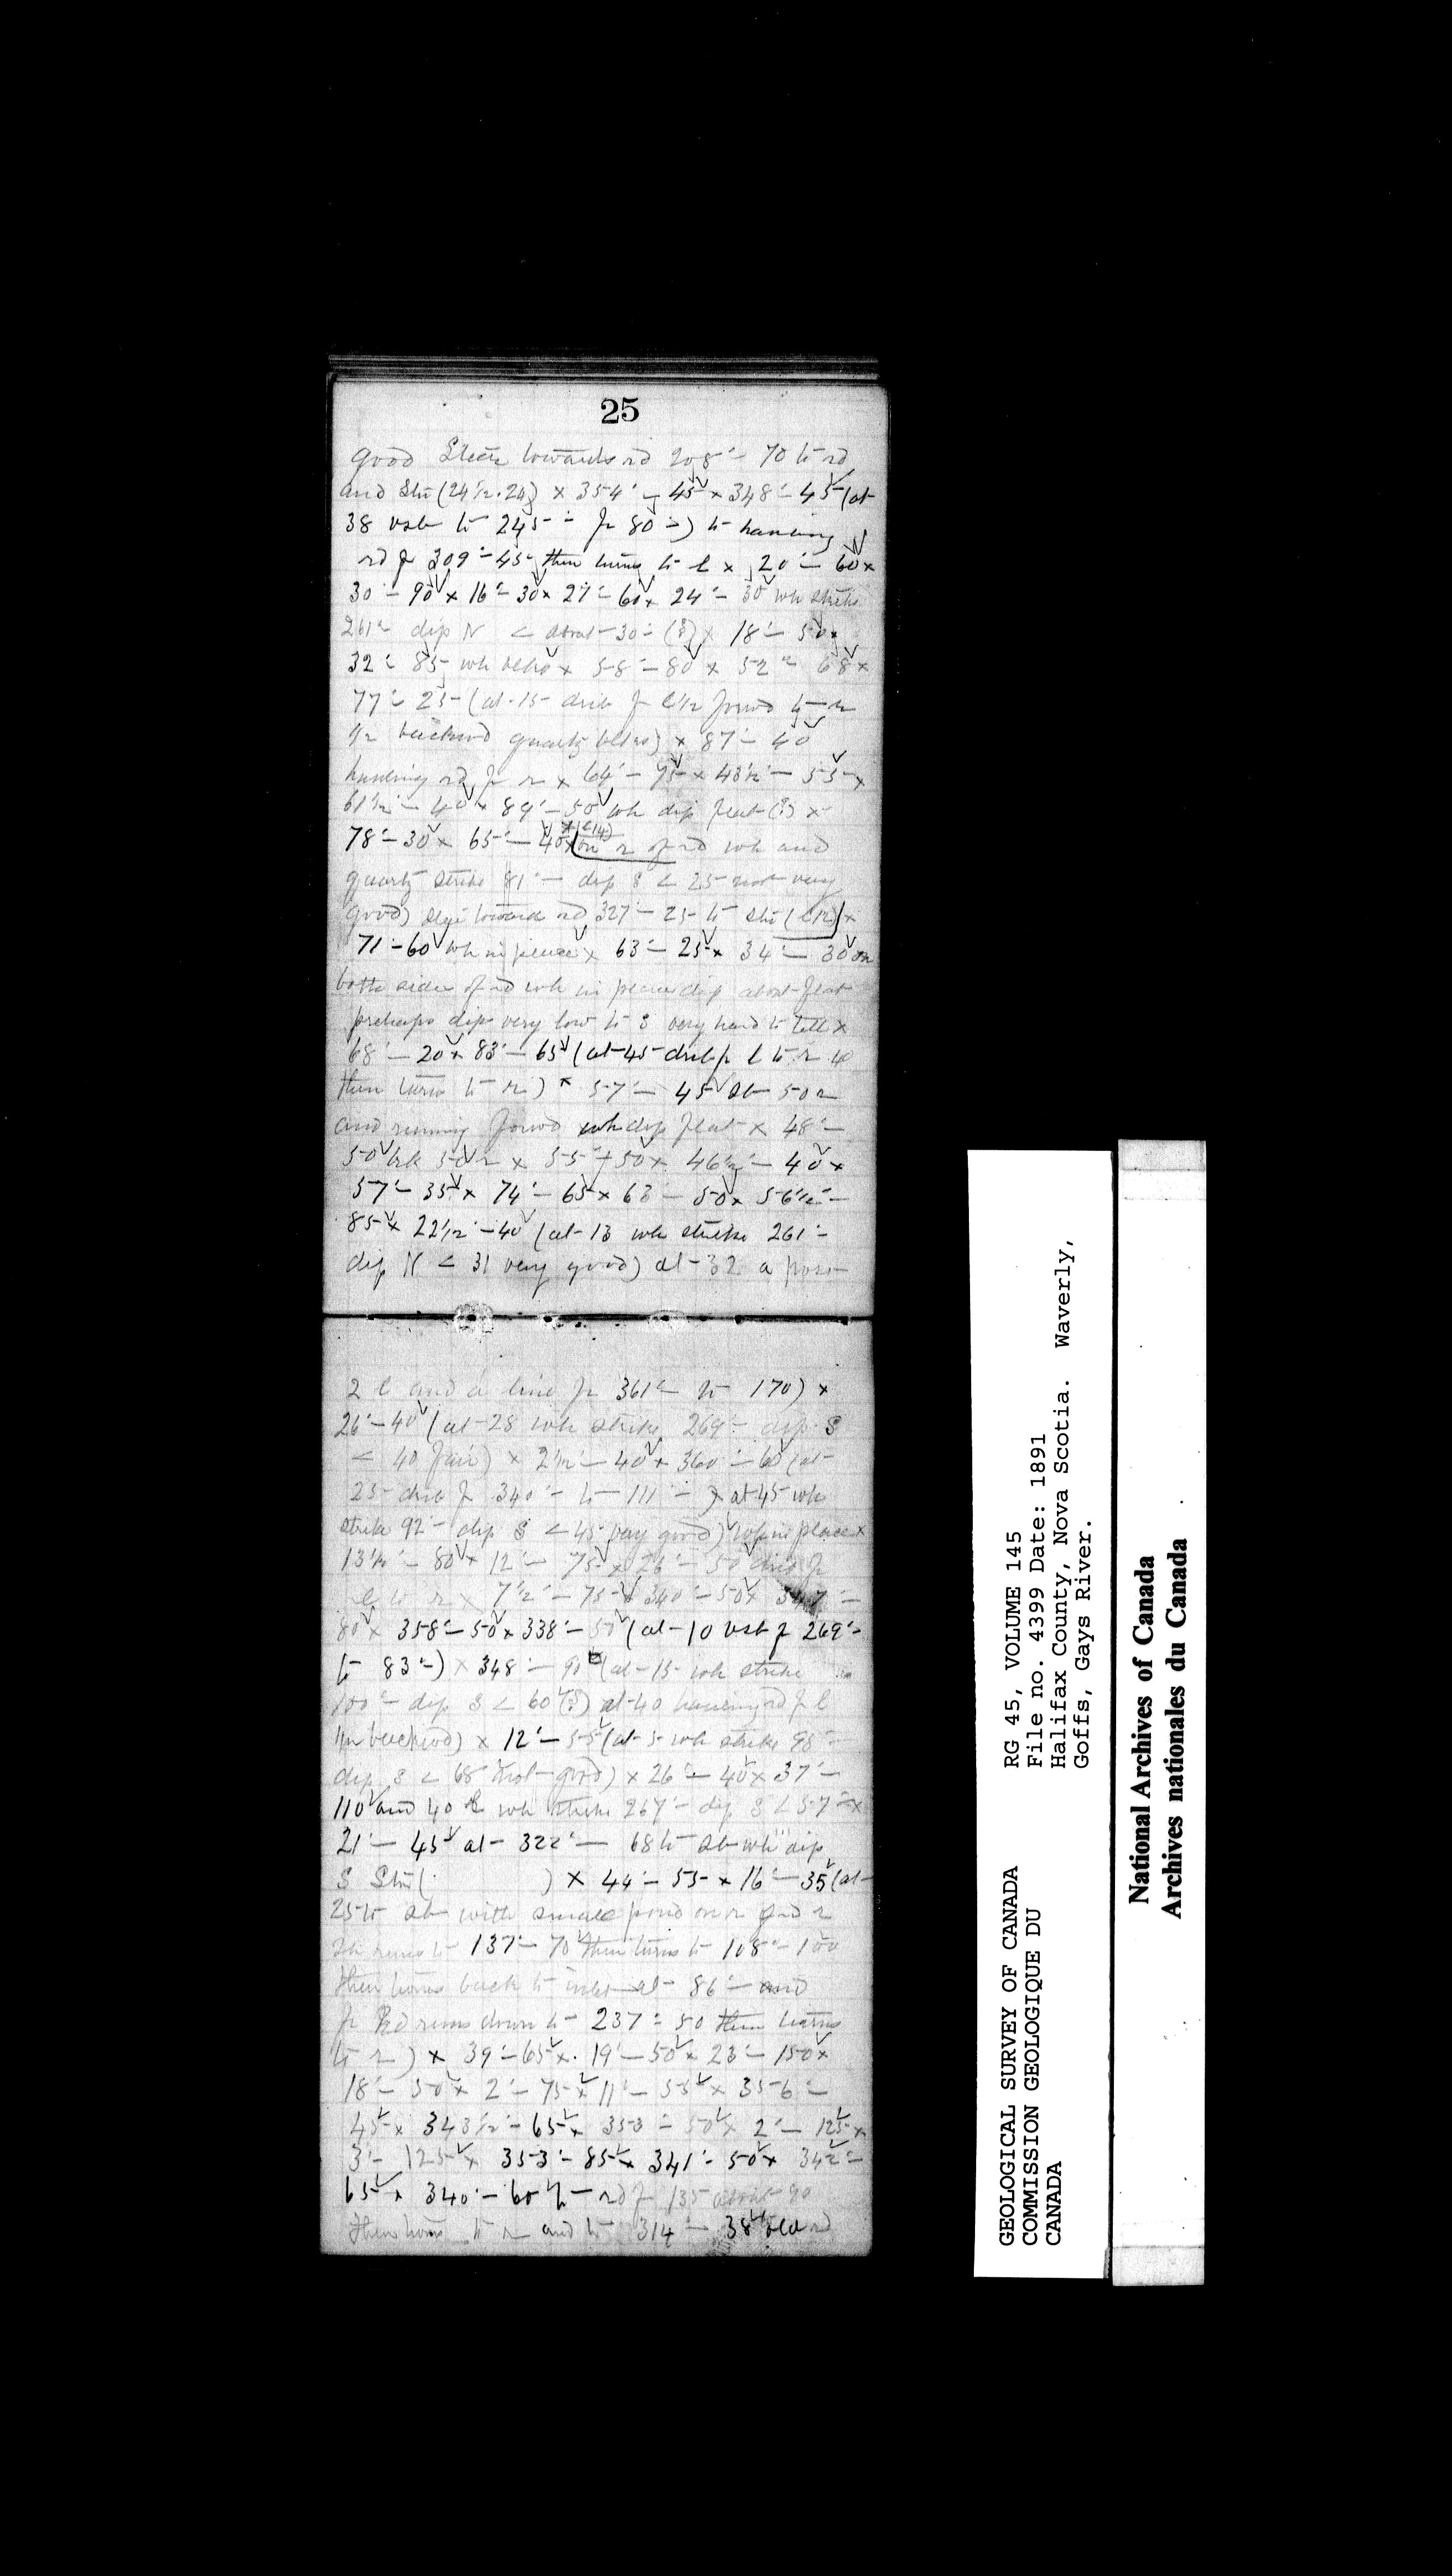 25
good Stn towards rd 208°- 70 to rd
and Stn (24½.24) x 354°- 45 x 348°- 45 (at
38 to 245°- fr 80°-) to hauling
rd fr 309°- 45 then turns to l x 20°- 60 x
30°- 90 x 16°- 30 x 27°- 60 x 24°- 30 wh strike
261°- dip N < about 30°- (?) x 18°- 50 x
32°- 85 wh x 58°- 80 x 52°- 68 x
77°- 25 (at 15 fr l½ forwd to r
½r backwd quartz) x 87°- 40
hauling rd fr r x 64°- 95 x 48½°- 55 x
61½°- 40 x 89°- 50 wh dip flat (?) x
78°- 30 x 65°- 40 x (on r of rd wh and
quartz strike 81°- dip S < 25 not very
good) toward rd 327°- 25 to stn (C12) x
71°- 60 wh in place x 63°- 25 x 34°- 30 on
both sides of rd wh in place dip about flat
perhaps dip very low to S very hard to tell x
68°- 20 x 83°- 65 (at 45 fr l to r 40
then turns to r) x 57°- 45 st 50 r
and running forwd wh dip flat x 48°-
50 50 r x 55°- 50 x 46½°- 40 x
57°- 35 x 74°- 65 x 63°- 50 x 56½°-
85 x 22½°- 40 (at 13 wh strike 261°-
dip N < 31 very good) at 32 a post
2 l and a line fr 361°- to 170) x
26°- 40 (at 28 wh strike 269°- dip S
< 40 fair) x 2½°- 40 x 360°- 60 (at
25 fr 340°- to 111°-) at 45 wh
strike 92°- dip S < 45 very good) wh in place x
13½°- 80 x 12°- 75 x 26°- 50 fr
l to r x 7½°- 75 x 340°- 50 x 347°-
80 x 358°- 50 x 338°- 50 (at 10 fr 269°-
to 83°-) x 348°- 90 (at 15 wh strike
100°- dip S < 60 (?) at 40 hauling rd fr l
½r backwd) x 12°- 55 (at 5 wh strike 98°-
dip S < 68 not good) x 26°- 40 x 37°-
110 and 40 wh strike 267°- dip S < 57°- x
21°- 45 at 322°- 68 to st wh dip
S Stn ( ) x 44°- 55 x 16°- 35 (at
25 to st with small pond on r of rd r
runs to 137°- 70 then turns to 108°- 100
then turns back to at 86°- and
fr Rd runs down to 237°- 50 then turns
to r) x 39°- 65 x 19°- 50 x 23°- 150 x
18°- 50 x 2°- 75 x 11°- 55 x 356°-
45 x 343½°- 65 x 353°- 50 x 2°- 125 x
3°- 125 x 353°- 85 x 341°- 50 x 342°-
65 x 340°- 60 to rd fr 135 about 90
then turns to r and to 314°- 38 old rd
GEOLOGICAL SURVEY OF CANADA
COMMISSION GEOLOGIQUE DU
CANADA
RG 45, VOLUME 145
File no. 4399 Date: 1891
Halifax County, Nova Scotia. Waverly,
Goffs, Gays River.
National Archives of Canada
Archives nationales du Canada